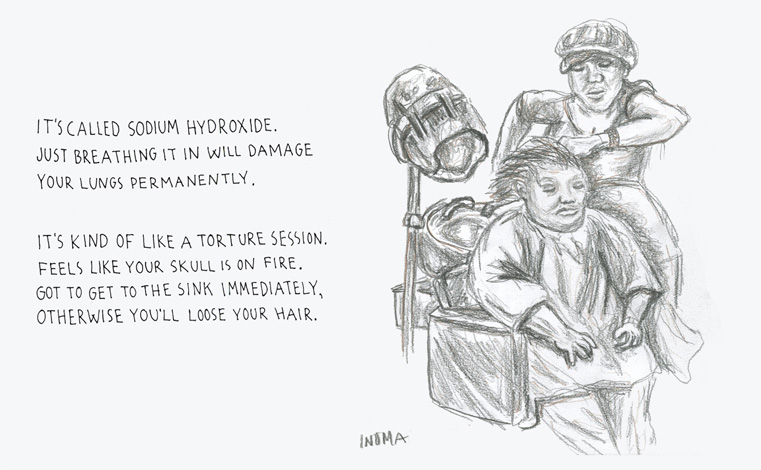 IT'S CALLED SODIUM HYDROXIDE.
JUST BREATHING IT IN WILL DAMAGE
YOUR LUNGS PERMANENTLY.
IT'S KIND OF LIKE A TORTURE SESSION.
FEELS LIKE YOUR SKULL IS ON FIRE.
GOT TO GET TO THE SINK IMMEDIATELY,
OTHERWISE YOU'LL LOOSE YOUR HAIR.